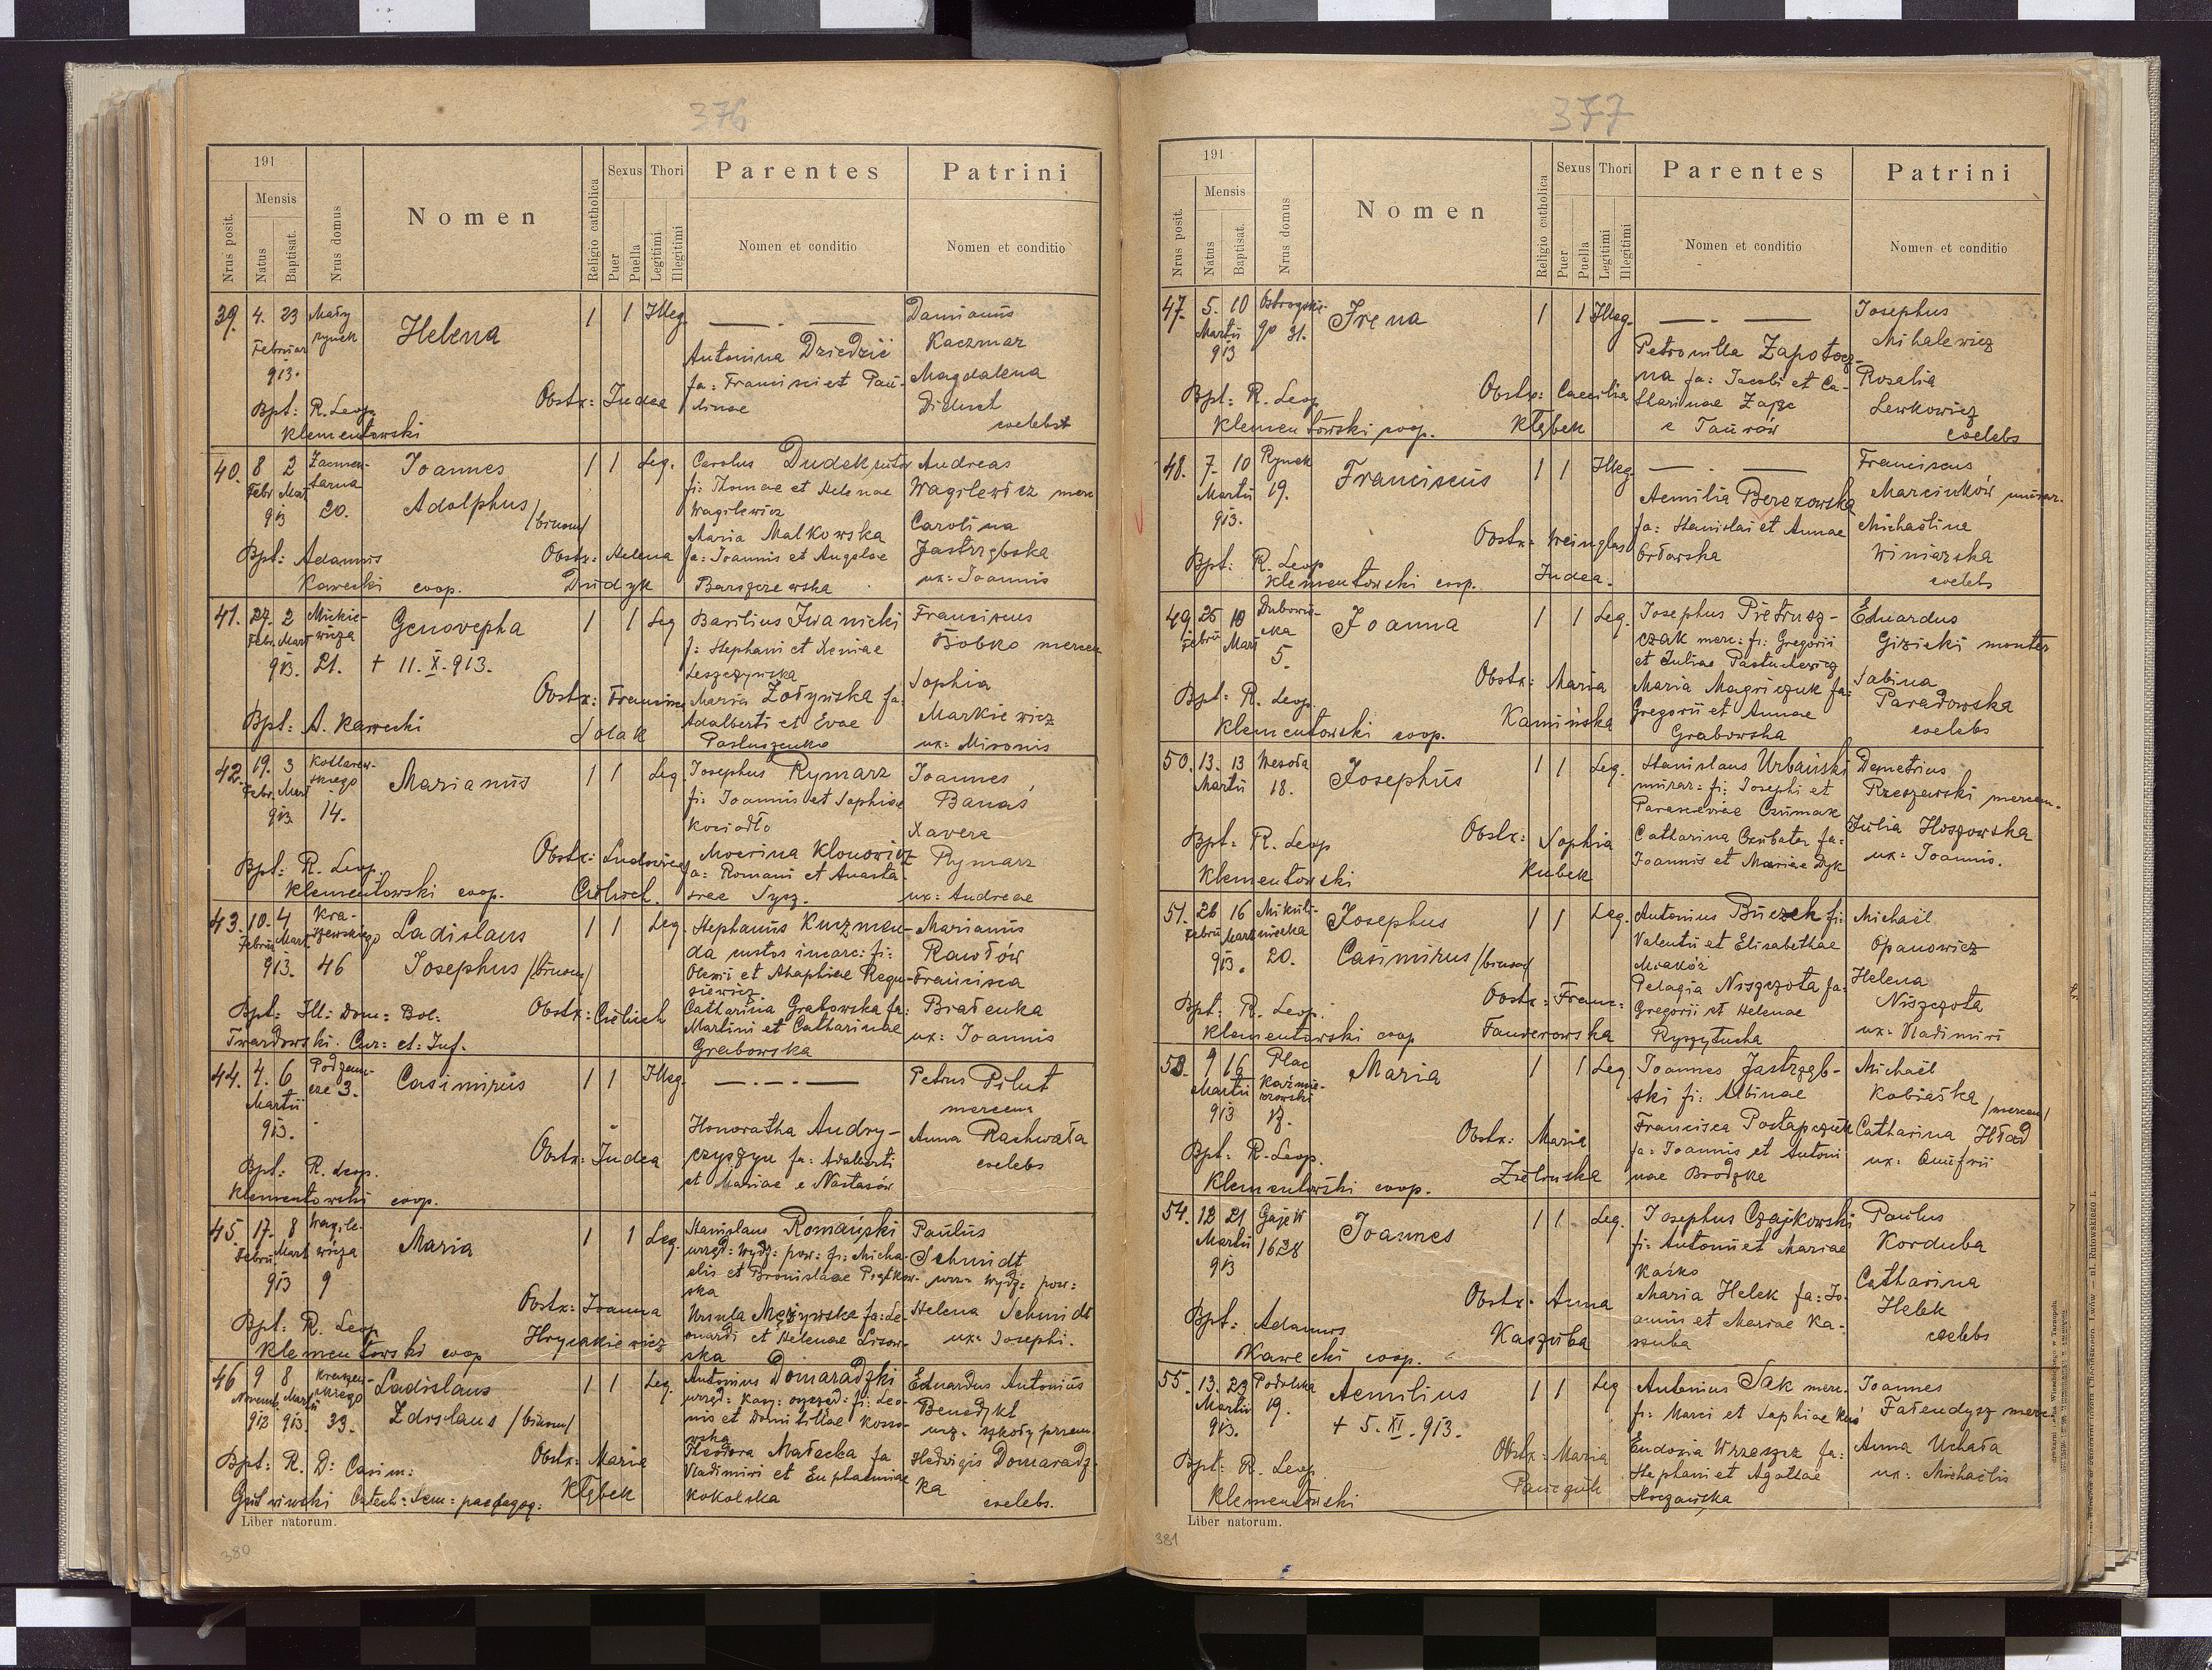 376
191
Nrus posit.
Mensis
Natus
Baptisat.
Nrus domus
Nomen
Religio catholica
Sexus
Puer
Puella
Thori
Legitimi
Illegitimi
Parentes
Nomen et conditio
Patrini
Nomen et conditio
39. 4. 23 Mały
Februar rynek
913.
Helena
1 1 Illeg.
Antonina Dziedzic
fa: Francisci et Pau-
linae
Damianus
Kaczmar
Magdalena
Diduch
coelebs
Obstx: Judea
Bpt: R. Leop.
Klementowski
40. 8 2
Febr. Mart
913 20.
Joannes
Adolphus /binom/
1 1 Leg.
Carolus Dudek
fi: Thomae et Helenae
Wagilewicz
Maria Malkowska
fa: Joannis et Angelae
Barszczewska
Andreas
Wagilewicz merc
Carolina
Jastrzębska
ux: Joannis
Obstx: Helena
Dudzyk
Bpt: Adamus
Kawecki coop.
41. 27. 2 Mickie-
Febr. Mart wicza
913. 21.
Genovepha
+ 11. X. 913.
1 1 Leg
Basilius Iwanicki
f: Stephani et Xeniae
Leszczyńska
Maria Żołyńska fa:
Adalberti et Evae
Pastuszenko
Franciscus
Bobko mercen
Sophia
Markiewicz
ux: Mironis
Obstx: Francisca
Solak
Bpt: A. Kawecki
42. 19. 3 Kotlarew-
Febr. Mart skiego
913. 14.
Marianus
1 1 Leg.
Josephus Rymarz
fi: Joannis et Sophiae
Kociodło
Moerina Klonowicz
fa: Romani et Anasta-
siae Sysz.
Joannes
Banaś
Xavera
Rymarz
ux: Andreae
Obstx: Ludovica
Cieluch.
Bpt: R. Leop.
Klementowski coop.
43. 10. 4 Kra-
Febru. Mart szewskiego
913. 46
Ladislaus
Josephus /binom/
1 1 Leg.
Stephanus Kuzmen-
da custos incarc: fi:
Catharina Grabowska fa:
Martini et Catharinae
Grabowska
Marianus
Rawłów
Francisca
Bratenka
ux: Joannis
Obstx: Cieluch
Bpt: Ill: Dom: Bol:
Twardowski. Cur: et: Inf.
44. 4. 6 Podzam-
Martii cze 3.
913.
Casimirus
1 1 Illeg.
Honoratha Andry-
czyszyn fa: Adalberti
et Mariae e Nastasów
Petrus Pilut
mercen
Anna Rachwała
coelebs
Obstx: Judea
Bpt: R. Leop.
Klementowski coop.
45. 17. 8 Wagile-
Febru. Mart wicza
913 9
Maria
1 1 Leg.
Stanislaus Romański
urzęd: Wydz: pow: fi: Micha-
elis et Bronislavae Piątkow-
ska
Ursula Mężyńska fa: Le-
onardi et Helenae Lisow-
ska
Paulus
Schmidt
urz: Wydz: pow:
Helena Schmidt
ux: Josephi.
Obstx: Joanna
Hryńakiewicz
Bpt: R. Leop
Klementowski coop
46 9 8 Kraszew-
Novemb. Martii skiego
913 913. 33.
Ladislaus
Zdislaus /binom/
1 1 Leg.
Antonius Domaradzki
urzęd: Kasy: oszczęd: fi: Leo-
nis et Domitillae Kosso-
wska
Theodora Małacka fa
Vladimiri et Euphemiae
Kokolska
Eduardus Antonius
Benedykt
urz: szkoły przem.
Hedvigis Domaradz-
ka
coelebs.
Obstx: Maria
Kłębek
Bpt: R. D: Casim:
Gutwiński Catech: Sem: paedagog:
Liber natorum.
380
377
191
Nrus posit.
Mensis
Natus
Baptisat.
Nrus domus
Nomen
Religio catholica
Sexus
Puer
Puella
Thori
Legitimi
Illegitimi
Parentes
Nomen et conditio
Patrini
Nomen et conditio
47. 5. 10 Ostrogskie-
Martii go 31.
913
Irena
1 1 Illeg.
Petronilla Zapotocz-
na fa: Jacobi et Ca-
tharinae Zając
e Taurów
Josephus
Mihalewicz
Rosalia
Lewkowicz
coelebs
Obstx: Caecilia
Kłębek
Bpt: R. Leop
Klementowski coop.
48. 7. 10 Rynek
Martii 19.
913.
Franciscus
1 1 Illeg
Aemilia Berezowska
fa: Stanislai et Annae
Orłowska
Franciscus
Marcinków murar.
Michalina
Winiarska
coelebs
Obstx: Weinglas
Judea.
Bpt: R. Leop
Klementowski coop.
49. 25 10 Dubowie-
Febru Mart cka
5.
Joanna
1 1 Leg.
Josephus Pietrusz-
czak merc: fi: Gregorii
et Juliae Pastuchewicz
Maria Magriczuk fa:
Gregorii et Annae
Grabowska
Eduardus
Gizicki monter
Sabina
Paradowska
coelebs
Obstx: Maria
Kamińska
Bpt: R. Leop.
Klementowski coop.
50. 13. 13 Wesoła
Martii 18.
Josephus
1 1 Leg.
Stanislaus Urbański
murar: fi: Josephi et
Parasceviae Czumak
Catharina Czubata fa:
Joannis et Mariae Dyk
Demetrius
Rzeszewski mercen.
Julia Hoszowska
ux: Joannis.
Obstx: Sophia
Kubek
Bpt: R. Leop
Klementowski
51. 26 16 Mikuli-
Febru Mart niecka
913. 20.
Josephus
Casimirus /binom/
1 1 Leg.
Antonius Buczek fi:
Valentii et Elisabethae
Miakóz
Pelagia Niszczota fa:
Gregorii et Helenae
Ryszytucha
Michaël
Opanowicz
Helena
Niszczota
ux: Vladimiri
Obstx: Franc:
Fanderowska
Bpt: R. Leop.
Klementowski coop
53. 9 16 Plac
Martii Kaźmie-
rzowski
913 17.
Maria
1 1 Leg
Joannes Jastrzęb-
ski fi: Albinae
Francisca Postapczuk
fa: Joannis et Antoni
nae Brodzka
Michaël
Kobiaska /mercen/
Catharina Hład
ux: Onufrii
Obstx: Maria
Zielinska
Bpt: R. Leop.
Klementowski coop.
54. 12 21 Gaje W
Martii 1628
913
Joannes
1 1 Leg.
Josephus Czajkowski
fi: Antonii et Mariae
Kaśko
Maria Helek fa: Jo-
annis et Mariae Ka-
szuba
Paulus
Korduba
Catharina
Helek
coelebs
Obstx. Anna
Kaszuba
Bpt: Adamus
Kawecki coop.
55. 13. 23 Podolska
Martii 19.
913.
Aemilius
+ 5. XI. 913.
1 1 Leg
Antonius Sak merc.
fi: Marci et Sophiae Kuś
Eudoxia Wrzeszcz fa:
Stephani et Agathae
Hoczańska
Joannes
Fałendysz merc.
Anna Uchała
ux: Michaëlis
Obstx: Maria
Bpt: R. Leop
Klementowski
Liber natorum.
381